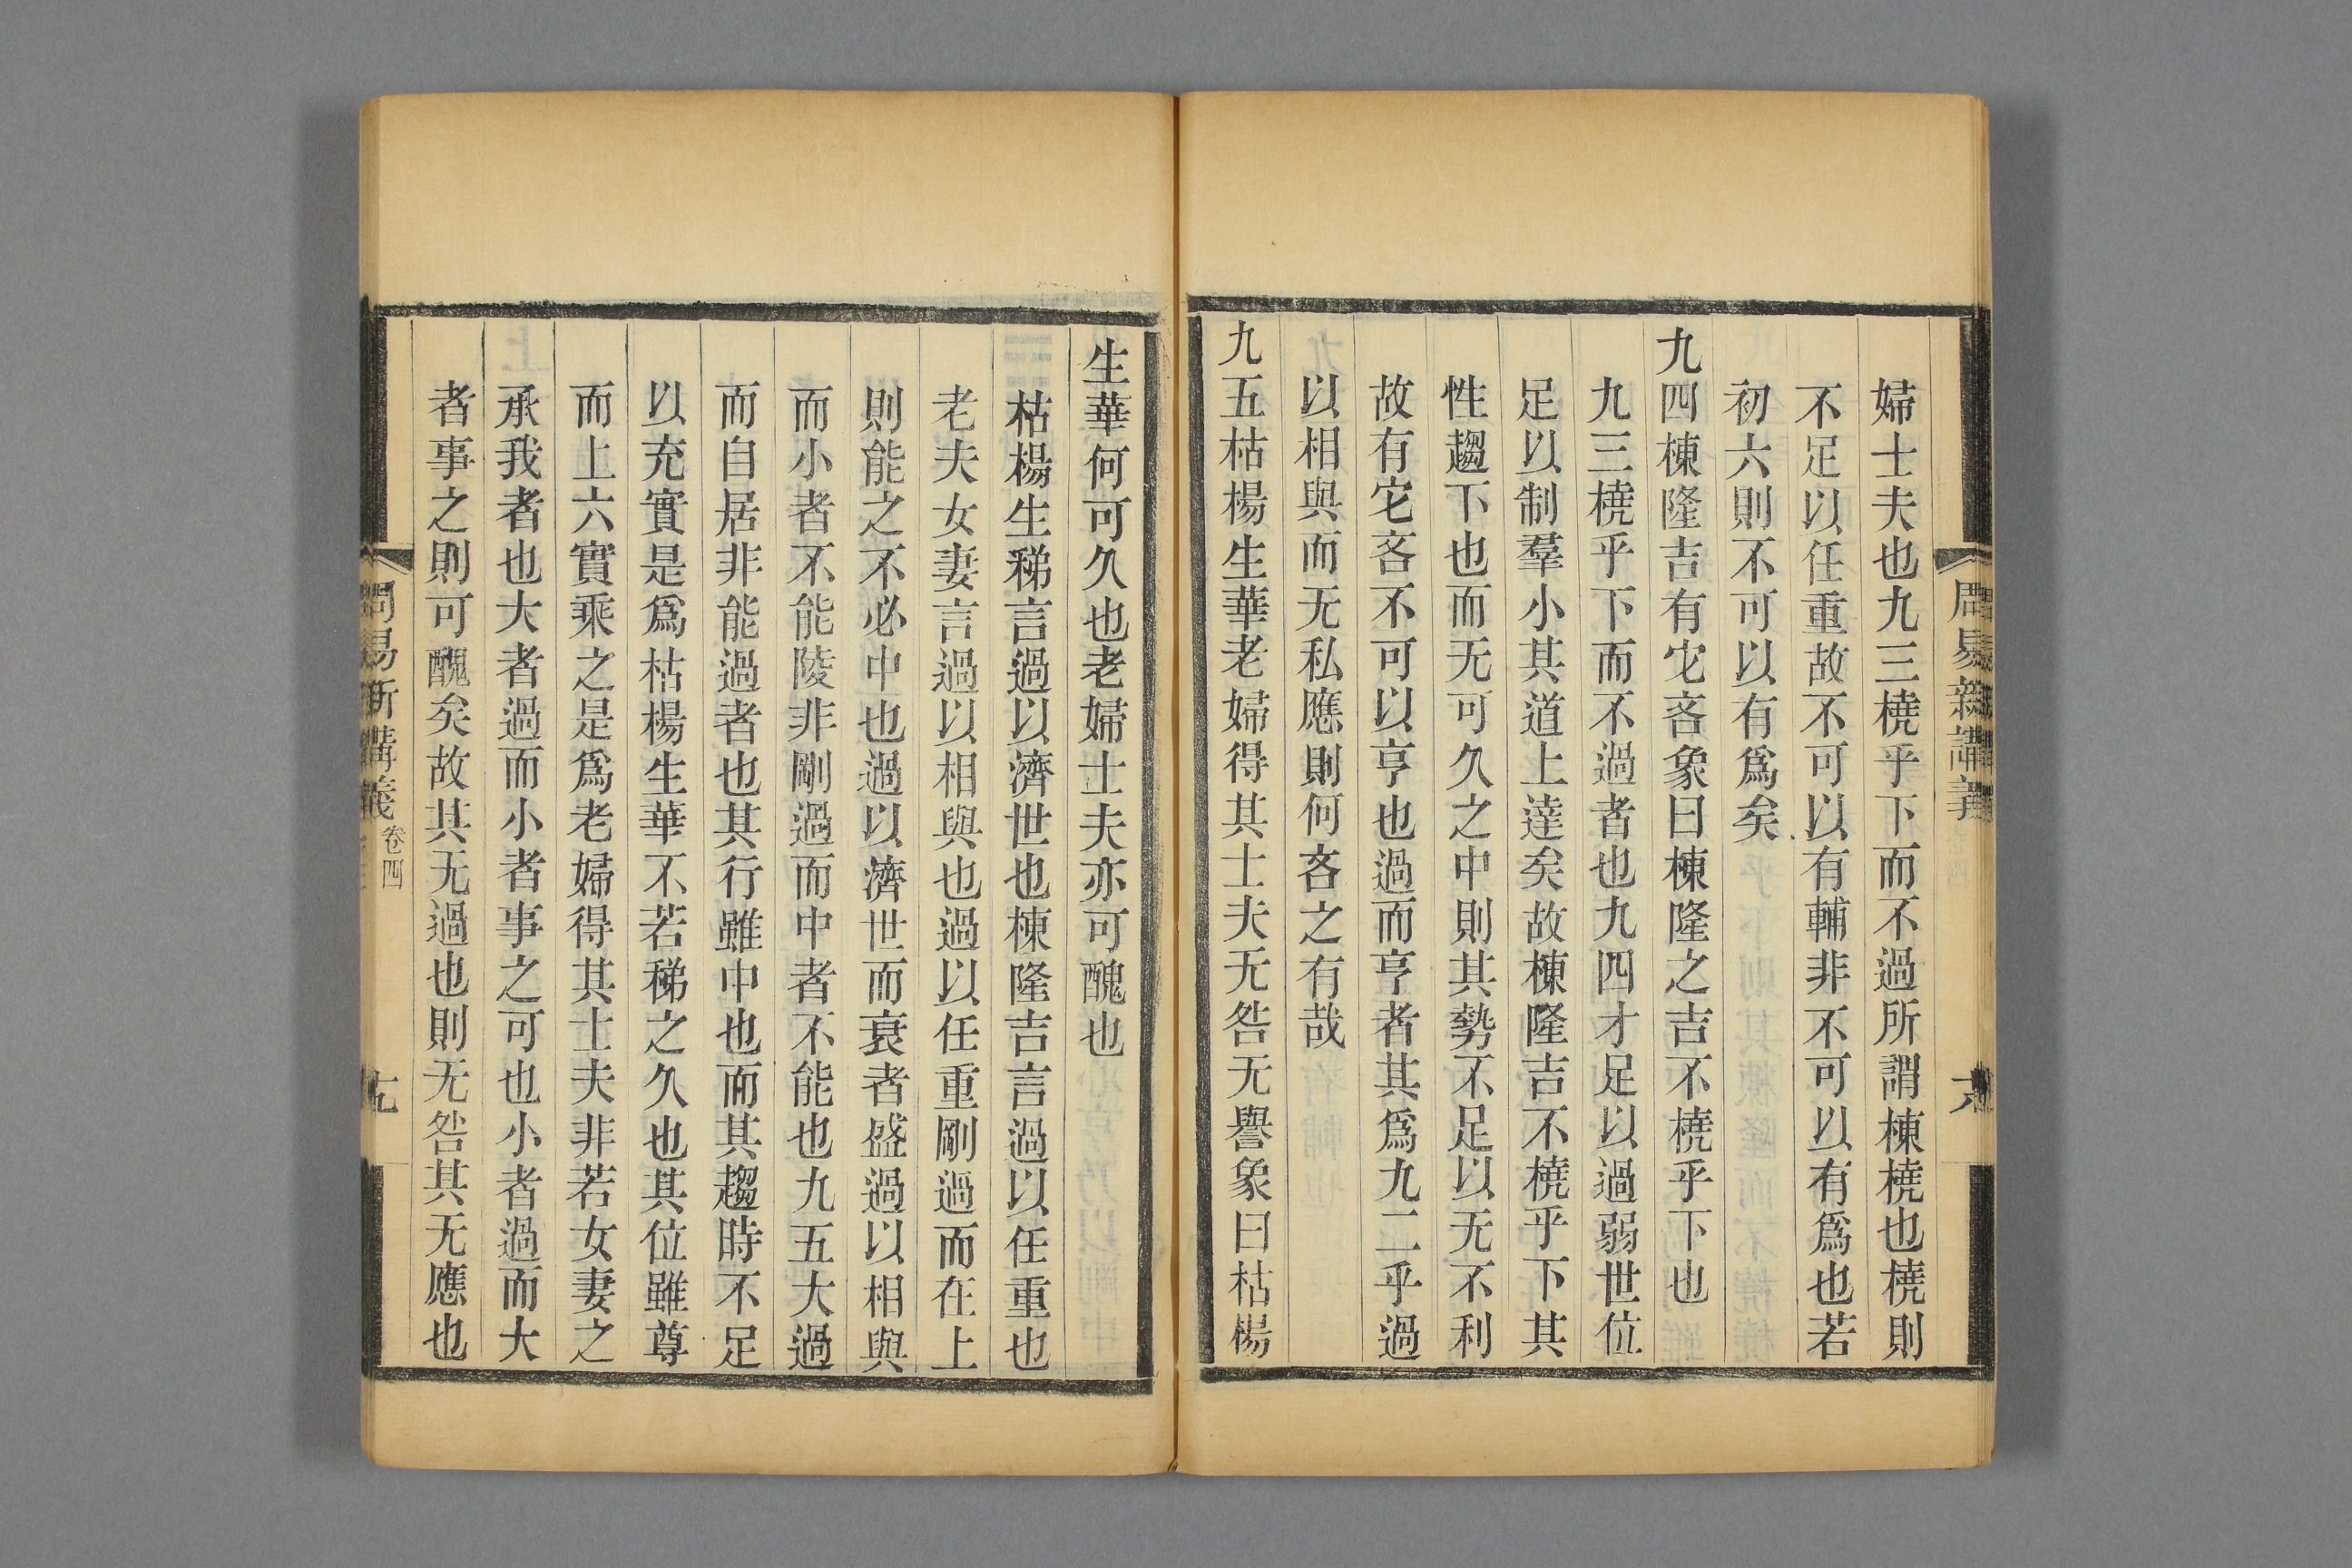 周易新講義
六
婦士夫也九三橈乎下而不過所謂棟橈也橈則
不足以任重故不可以有輔非不可以有爲也若
初六則不可以有爲矣
九四棟隆吉有它吝象曰棟隆之吉不橈乎下也
九三橈乎下而不過者也九四才足以過弱世位
足以制羣小其道上達矣故棟隆吉不橈乎下其
性趨下也而无可久之中則其勢不足以无不利
故有它吝不可以亨也過而亨者其爲九二乎過
以相與而无私應則何吝之有哉
九五枯楊生華老婦得其士夫无咎无譽象曰枯楊
生華何可久也老婦士夫亦可醜也
枯楊生稊言過以濟世也棟隆吉言過以任重也
老夫女妻言過以相與也過以任重剛過而在上
則能之不必中也過以濟世而衰者盛過以相與
而小者不能陵非剛過而中者不能也九五大過
而自居非能過者也其行雖中也而其趨時不足
以充實是爲枯楊生華不若稊之久也其位雖尊
而上六實乘之是爲老婦得其士夫非若女妻之
承我者也大者過而小者事之可也小者過而大
者事之則可醜矣故其无過也則无咎其无應也
周易新講義
卷四
七